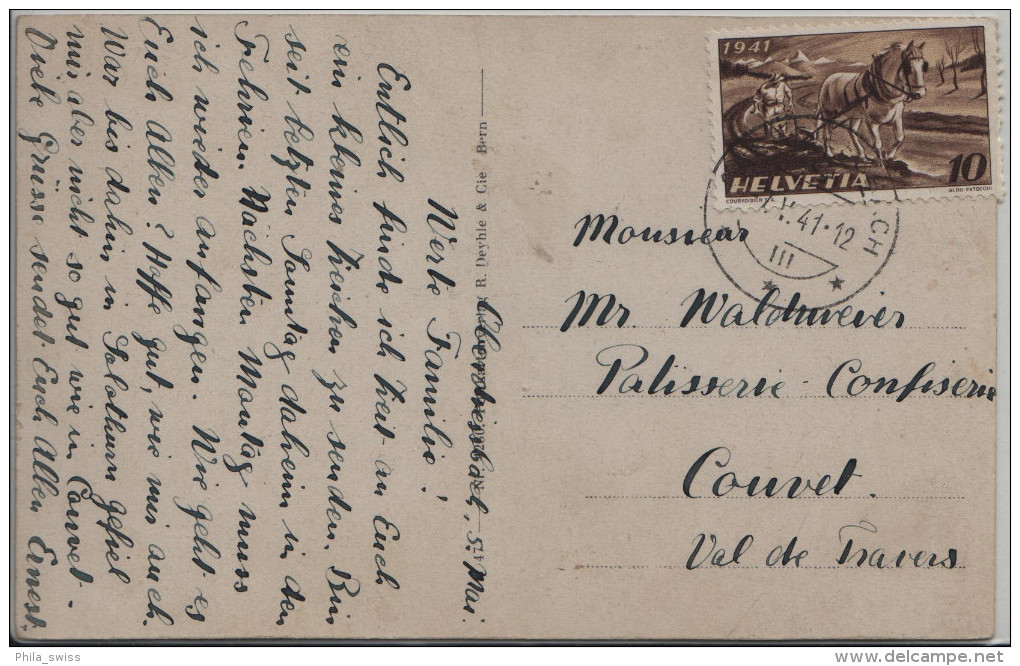 1941
10
HELVETIA
COURVOISIER S.A.
ALDO PATOCCHI
CH
41·12
III
Monsieur
Mr. Waldmeier
Patisserie - Confiserie
Couvet.
Val de Travers
R. Deyhle & Cie Bern
5. Mai
Werte Familie!
Entlich finde ich Zeit an Euch
ein kleines Zeichen zu senden. Bin
seit letzten Sonntag daheim in den
Ferien. Nächsten Montag muss
ich wieder anfangen. Wie geht es
Euch Allen? Hoffe gut, wie mir auch.
War bis dahin in Solothurn gefiel
mir aber nicht so gut wie in Couvet.
Viele Grüsse sendet Euch Allen Ernest.
Phila_swiss